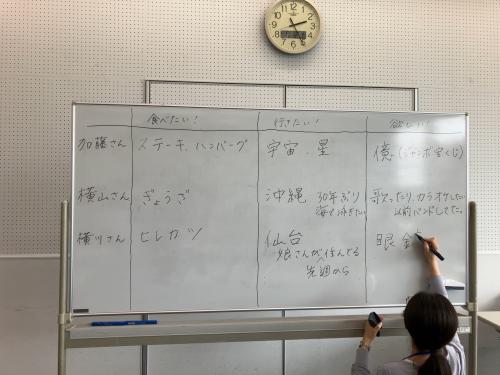 食べたい! 行きたい! 欲しい!
加藤さん ステーキ、ハンバーグ 宇宙、星 億(ジャンボ宝くじ)
横山さん ぎょうざ 沖縄 30年ぶり 歌ったり、カラオケしたい
海で泳ぎたい 以前バンドしてた。
横川さん ヒレカツ 仙台 眼金
娘さんが住んでる
先週から